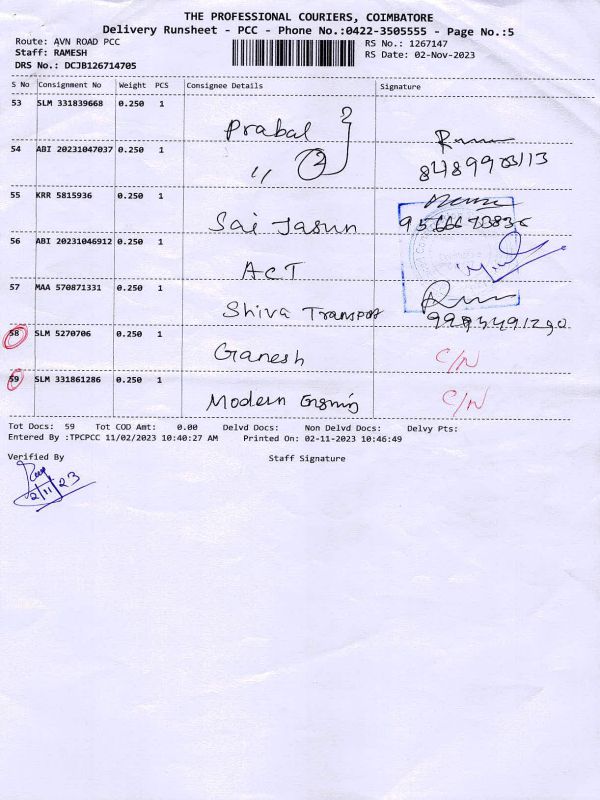 THE PROFESSIONAL COURIERS, COIMBATORE
Delivery Runsheet - PCC - Phone No.:0422-3505555 - Page No.:5
Route: AVN ROAD PCC
Staff: RAMESH
DRS No.: DCJB126714705
RS No.: 1267147
RS Date: 02-Nov-2023
S No Consignment No Weight PCS Consignee Details Signature
53 SLM 331839668 0.250 1 Prabal
54 ABI 20231047037 0.250 1 〃 2
55 KRR 5815936 0.250 1 Sai Jasun
56 ABI 20231046912 0.250 1 ACT
57 MAA 570871331 0.250 1 Shiva Transport
58 SLM 5270706 0.250 1 Ganesh C/N
59 SLM 331861286 0.250 1 Modern C/N
Tot Docs: 59 Tot COD Amt: 0.00 Delvd Docs: Non Delvd Docs: Delvy Pts:
Entered By :TPCPCC 11/02/2023 10:40:27 AM Printed On: 02-11-2023 10:46:49
Verified By Staff Signature
2/11/23